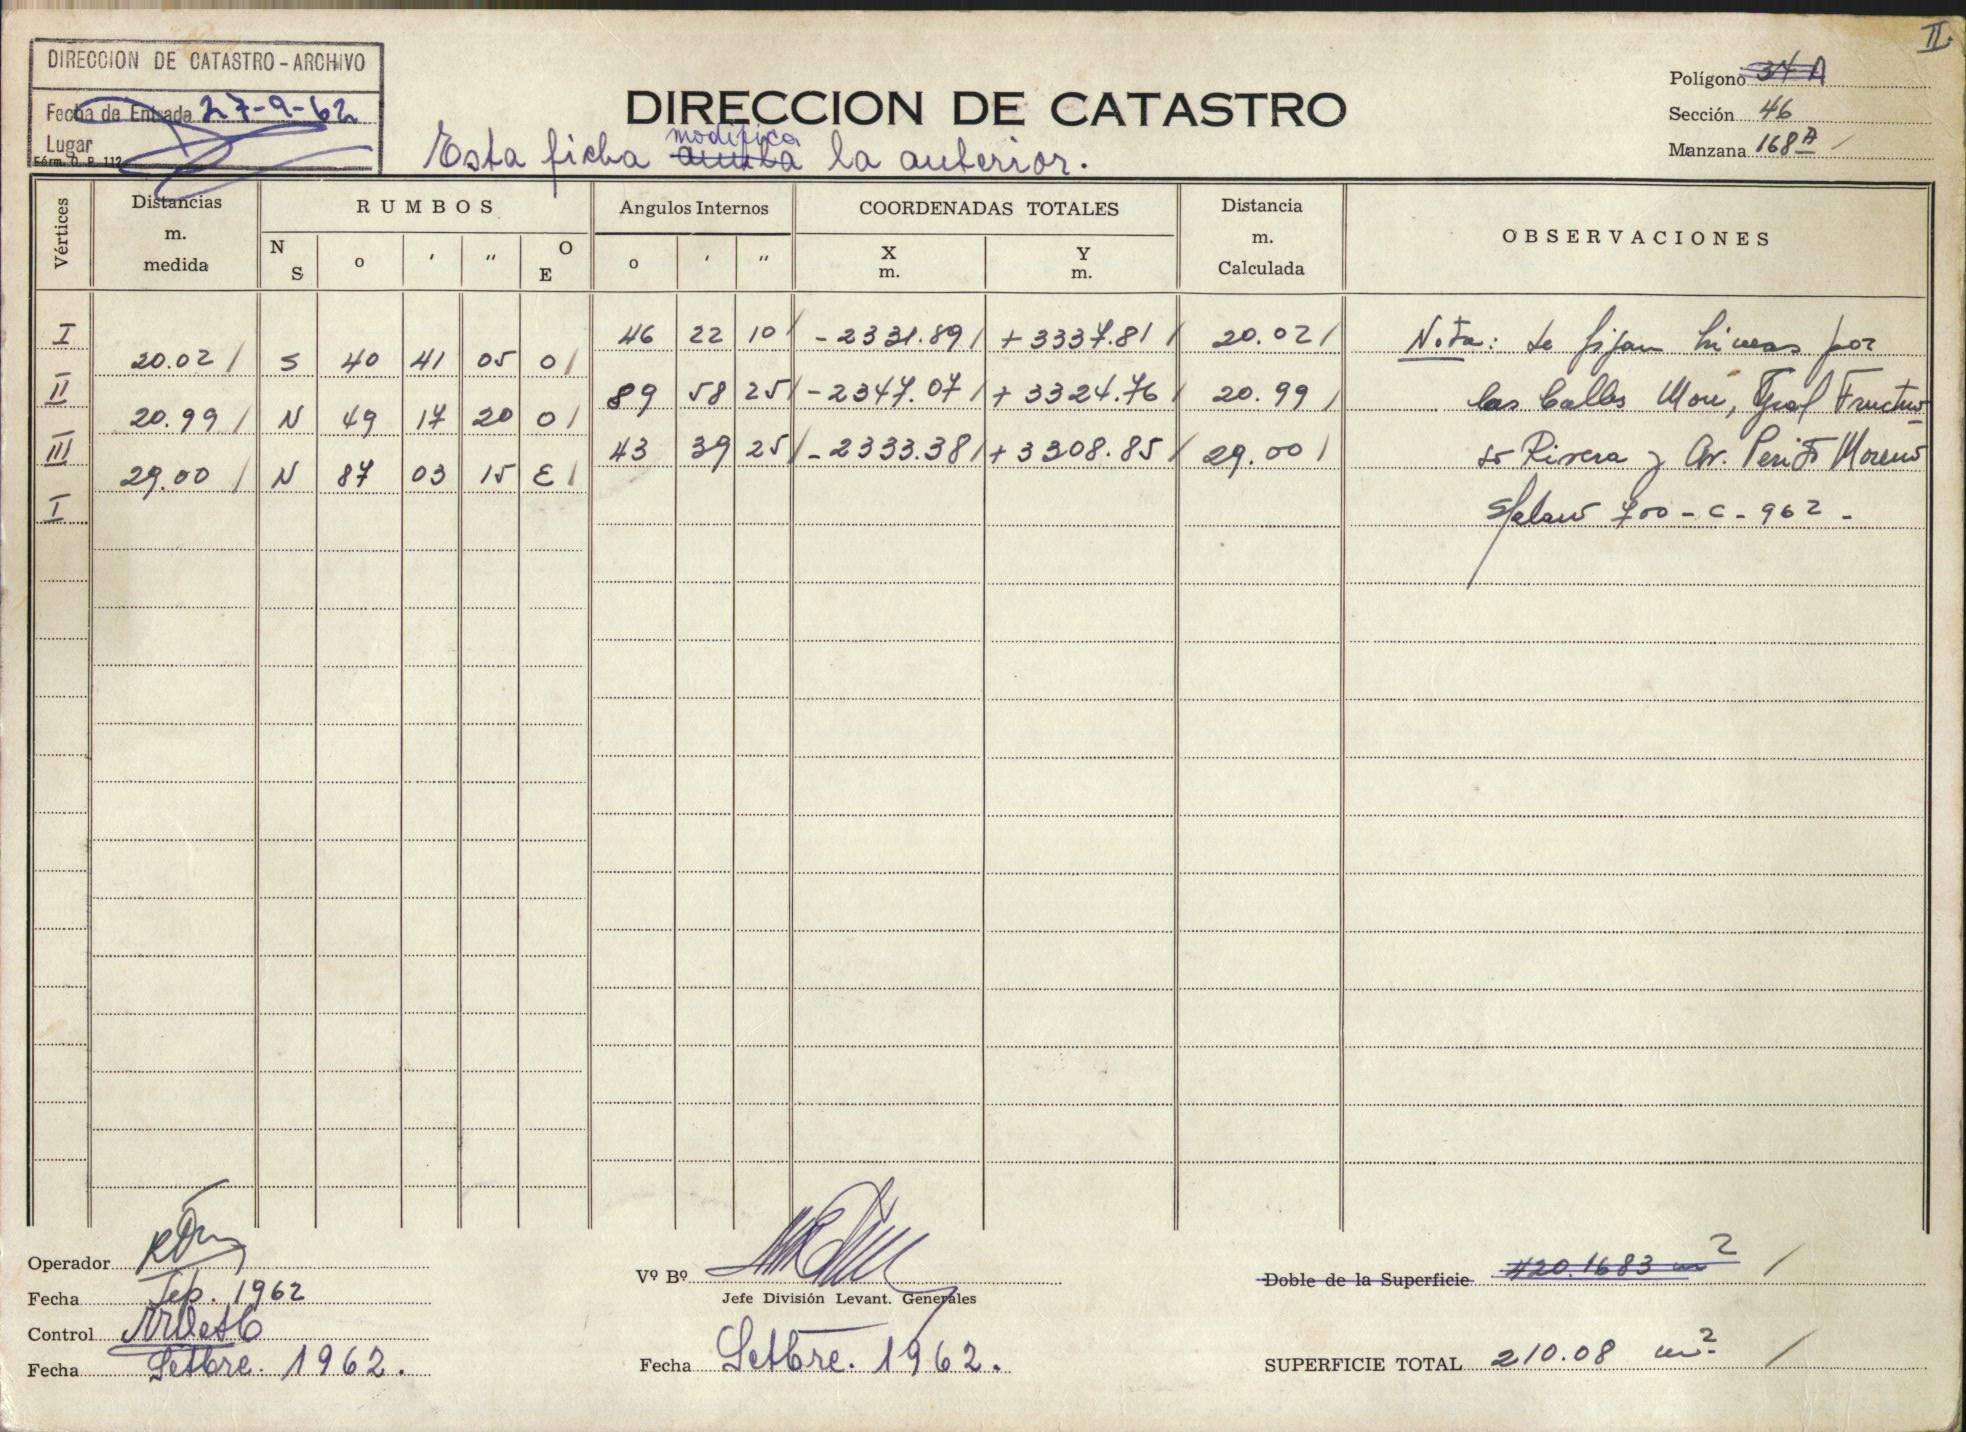 II.
DIRECCION DE CATASTRO - ARCHIVO
Fecha de Entrada 27-9-62
Lugar
Fórm. O. P. 112
DIRECCION DE CATASTRO
Esta ficha modifica anula la anterior.
Polígono 34 A
Sección 46
Manzana 168A
Vértices
Distancias m. medida
RUMBOS
N S ° ' " O E
Angulos Internos
° ' "
COORDENADAS TOTALES
X m. Y m.
Distancia m. Calculada
OBSERVACIONES
I 46 22 10 / - 2331.89 / + 3337.81 / 20.02 /
20.02 / S 40 41 05 O /
II 89 58 25 / - 2347.07 / + 3324.76 / 20.99 /
20.99 / N 49 17 20 O /
III 43 39 25 / - 2333.38 / + 3308.85 / 29.00 /
29.00 / N 87 03 15 E /
I
Nota: se fijan lineas por
las Calles Moré, Gral Fructuo
so Rivera y Av. Perito Moreno
700 - C - 962 -
Operador
Fecha Sep. 1962
Control
Fecha Setbre. 1962.
Vº Bº
Jefe División Levant. Generales
Fecha Setbre. 1962.
Doble de la Superficie 420.1683 m2 /
SUPERFICIE TOTAL 210.08 m2 /